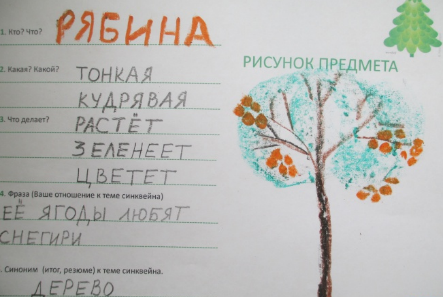 1. Кто? Что?
РЯБИНА
РИСУНОК ПРЕДМЕТА
2. Какая? Какой?
ТОНКАЯ
КУДРЯВАЯ
3. Что делает?
РАСТЁТ
ЗЕЛЕНЕЕТ
ЦВЕТЕТ
4. Фраза (Ваше отношение к теме синквейна)
ЕЁ ЯГОДЫ ЛЮБЯТ
СНЕГИРИ
. Синоним (итог, резюме) к теме синквейна.
ДЕРЕВО